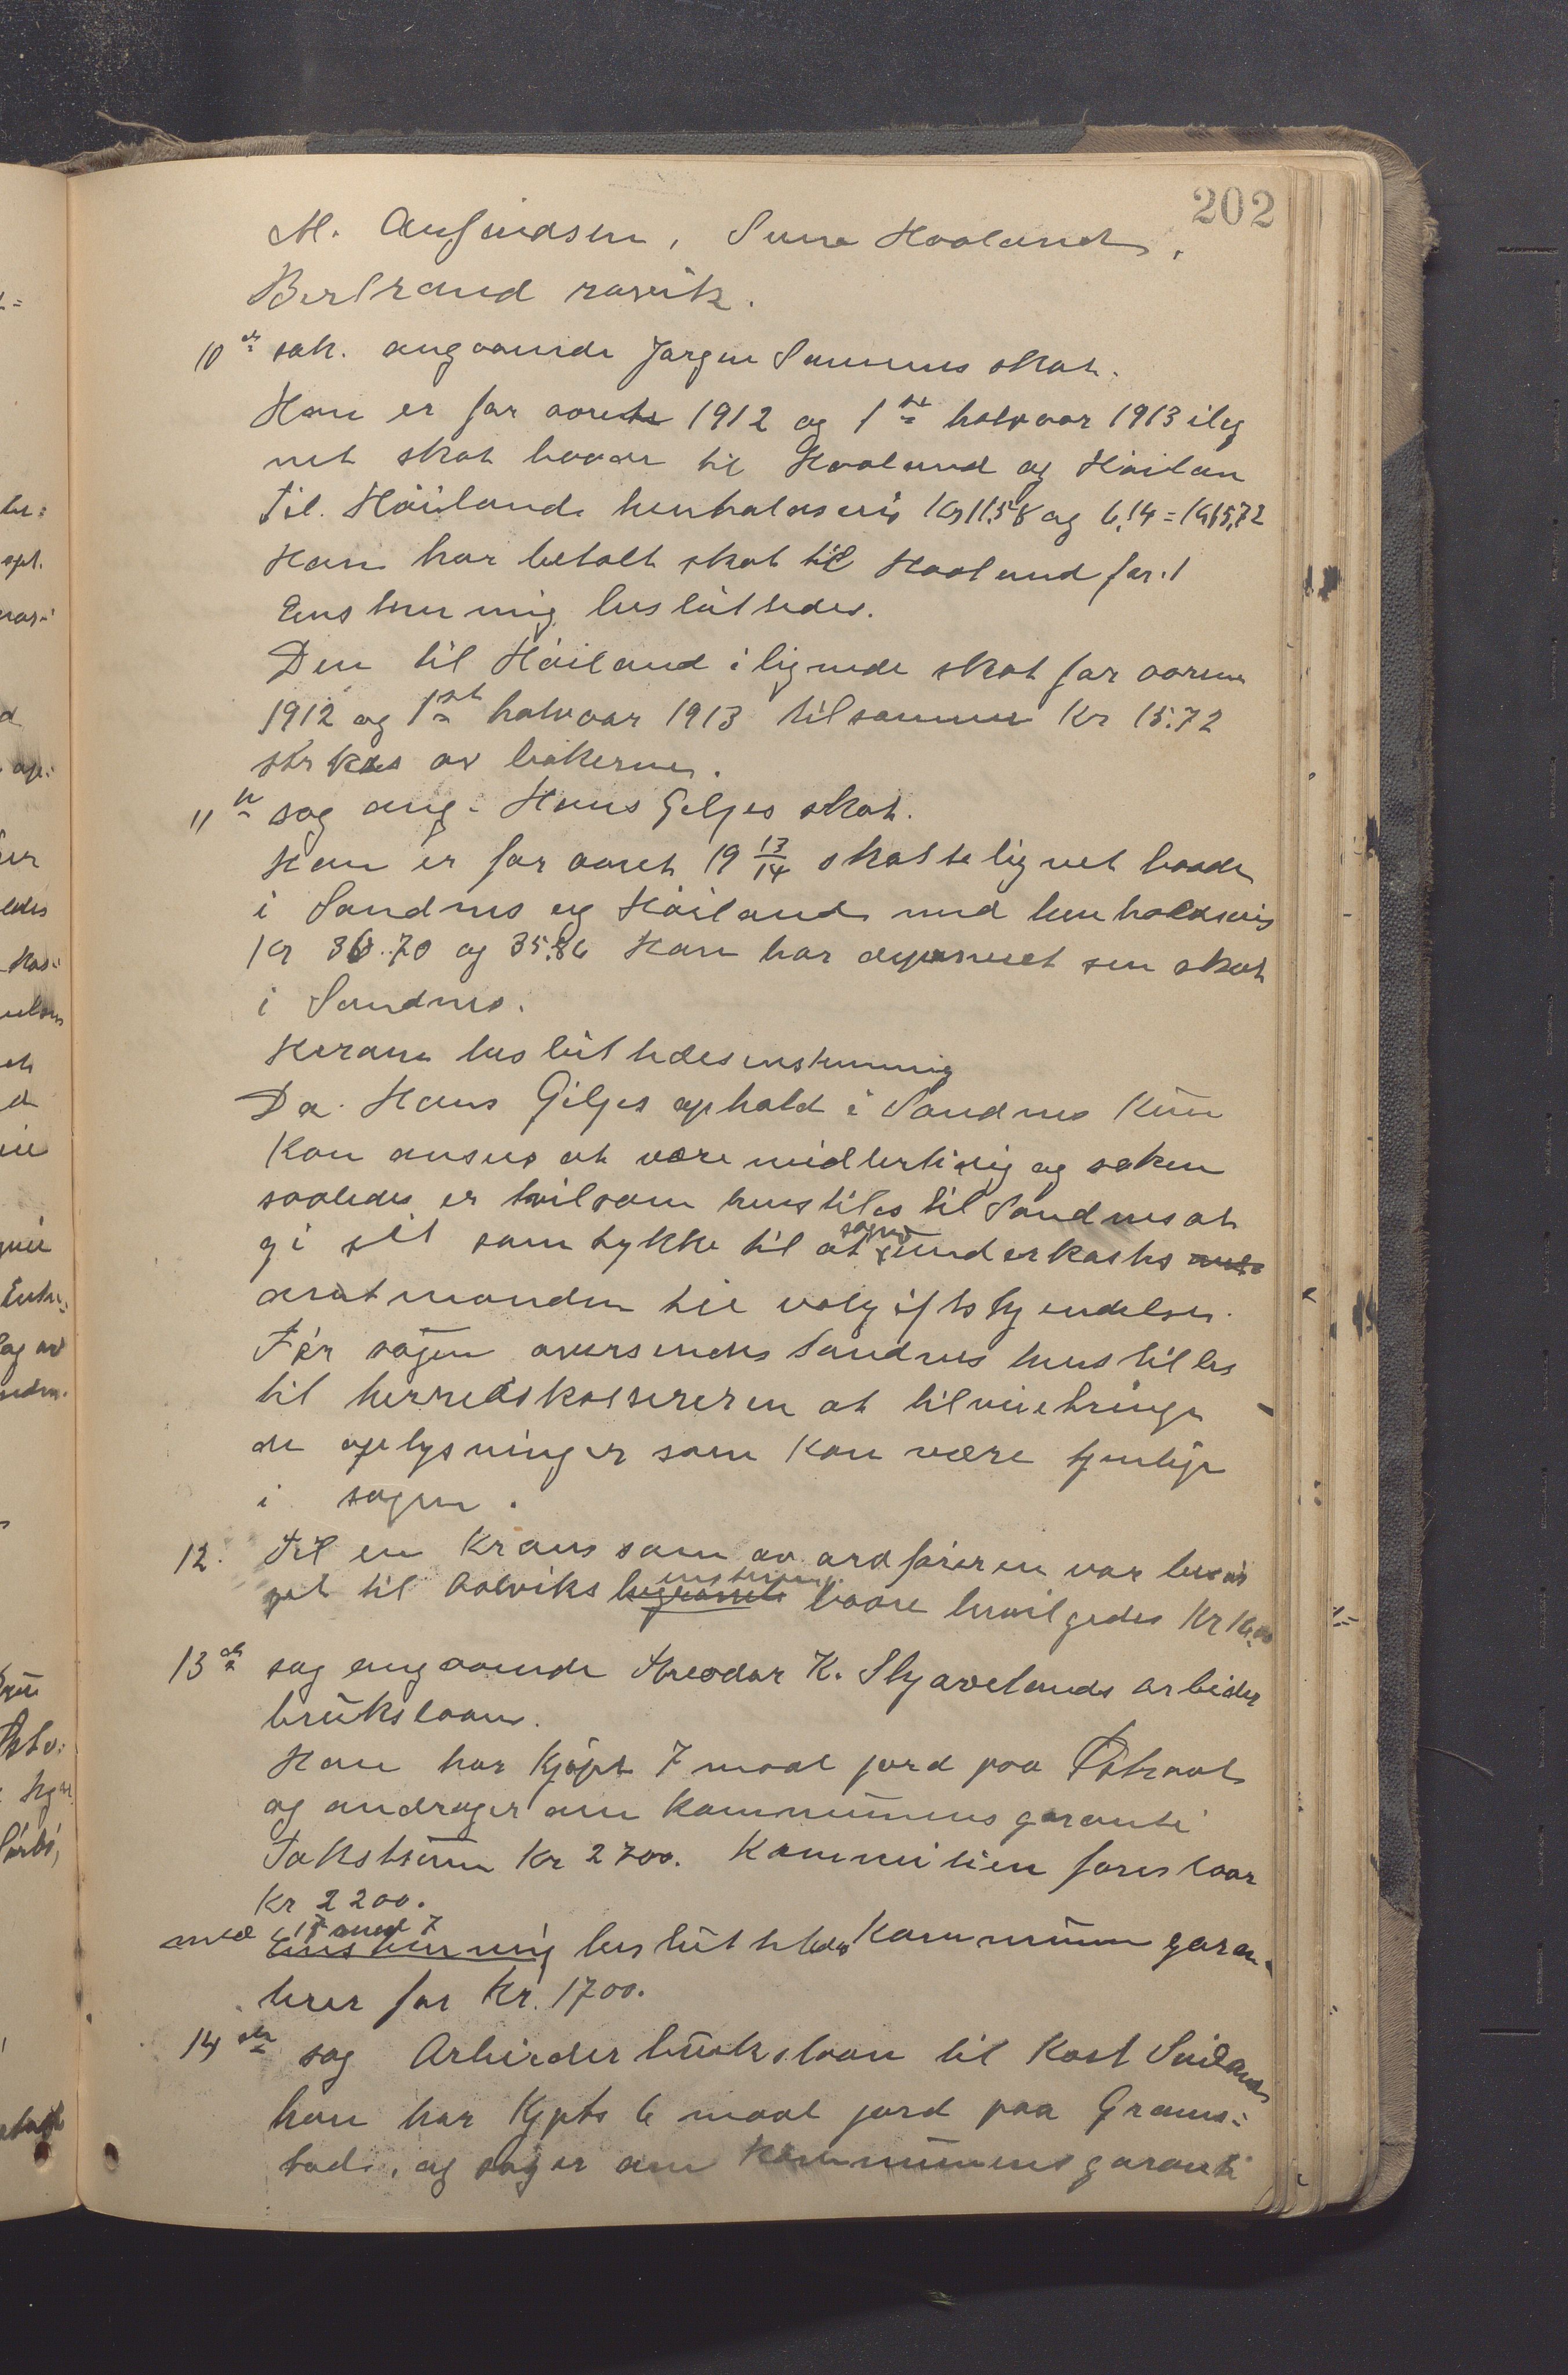 202
M. Aufindsen, Sven Haaland,
Bertrand ravik.
10de sak. angaaende Jørgen Sømmes skat.
Han er for aaret 1912 og 1ste halvaar 1913 ilig
net skat baade til Haaland og Høilan
til. Høiland henholdsvis Kr 11.58 og 6,14 = Kr 15,72
Han har betalt skat til Haaland for.
Enstemmig besluttedes.
Den til Høiland ilignede skat for aarene
1912 og 1ste halvaar 1913 tilsammen Kr 15.72
strykes av bøkerne.
11te sag ang. Hans Giljes skat.
Han er for aaret 19 13/14 skattelignet baade
i Sandnes og Høiland med henholdsvis
Kr 36.70 og 35.86 Han har deponeret sin skat
i Sandnes.
Herom besluttedes enstemmig
Da Hans Giljes ophold i Sandnes kun
kan ansees at være midlertidig og saken
saaledes er tvilsom henstilles til Sandnes at
gi sit samtykke til at sagen underkastes
amtmanden til voldgiftskjendelse.
Før sagen oversendes Sandnes henstilles
til herredskassereren at tilveiebringe
de oplysninger som kan være tjenlige
i sagen.
12. Til en Krans som av ordføreren var besør
get til Aalviks enstemmig baare bevilgedes Kr 16,00
13de sag angaaende Theodor K. Skjævelands arbeider
bruksloan.
Han har Kjøpt 7 maal jord paa
og andrager om kommunens garanti
Takstsum Kr 2700. Kommisien foreslaar
Kr 2200.
med 17 mod 7
Enstemmig besluttedes Kommunen garan-
terer for Kr. 1700.
14de sag Arbeiderbruksloan til Karl Seiland
han har Kjøpt 6 maal jord paa Gram=
stad, og søger om Kommunens garanti